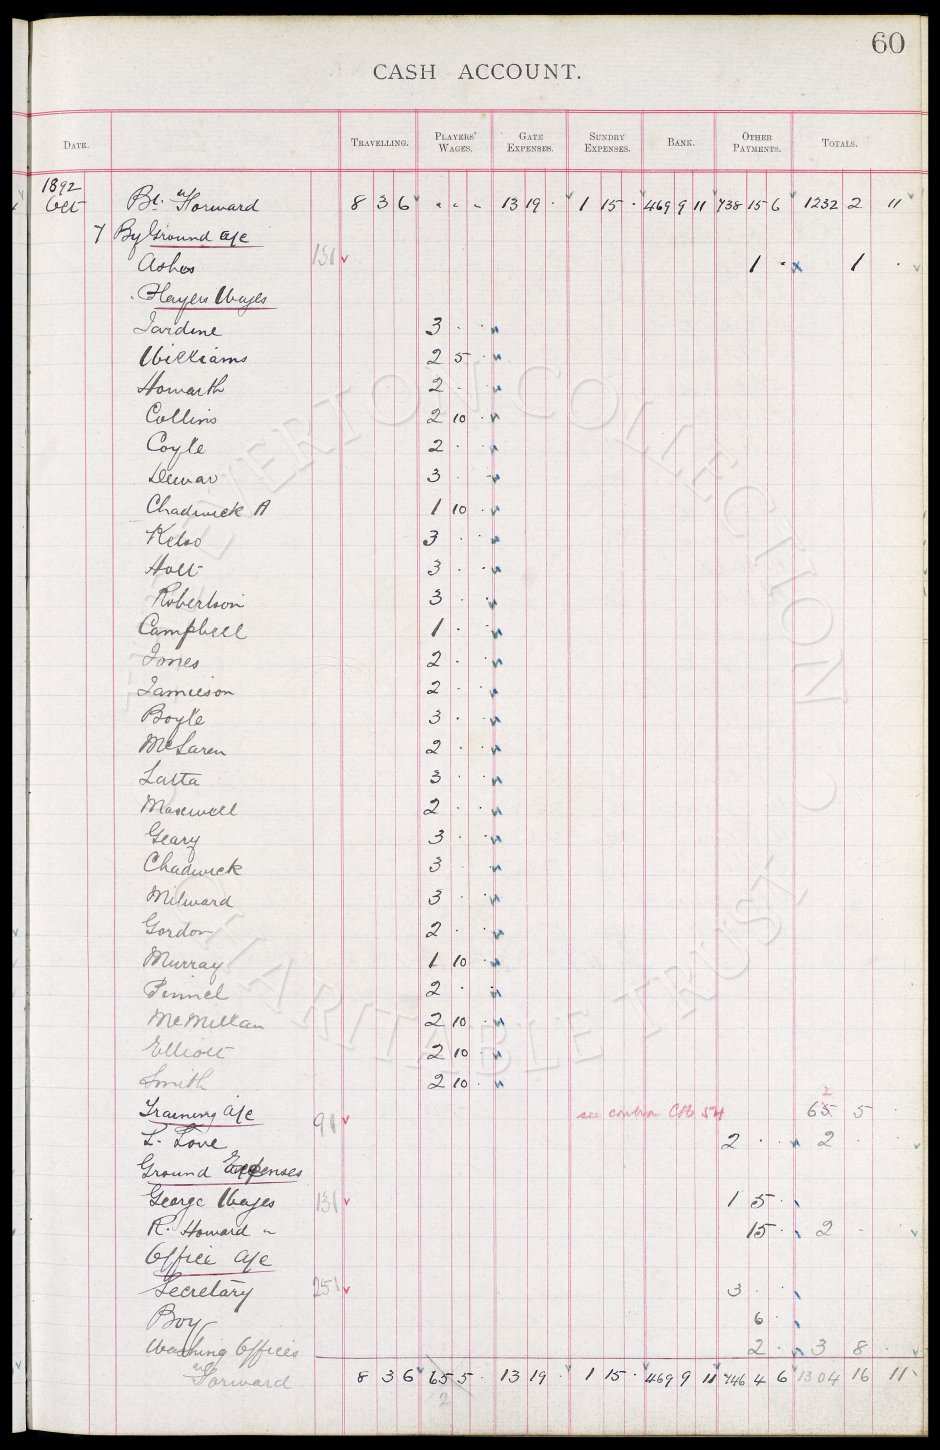 60
CASH ACCOUNT.
DATE. TRAVELLING. PLAYERS' WAGES. GATE EXPENSES. SUNDRY EXPENSES. BANK. OTHER PAYMENTS. TOTALS.
1892
Oct Bt. Forward 8 3 6 " " " 13 19 · 1 15 · 469 9 11 738 15 6 1232 2 11
7 By Ground a/c
Ashes 131 1 · 1 ·
Players Wages
Jardine 3 · ·
Williams 2 5 ·
Howarth 2 · ·
Collins 2 10 ·
Coyle 2 · ·
Dewar 3 · ·
Chadwick A 1 10 ·
Kelso 3 · ·
Holt 3 · ·
Robertson 3 · ·
Campbell 1 · ·
Jones 2 · ·
Jamieson 2 · ·
Boyle 3 · ·
McLaren 2 · ·
Latta 3 · ·
Maxwell 2 · ·
Geary 3 · ·
Chadwick 3 · ·
Milward 3 · ·
Gordon 2 · ·
Murray 1 10 ·
Pinnel 2 · ·
McMillan 2 10 ·
Elliott 2 10 ·
Smith 2 10 ·
Training a/c 91 see contra CB 54 65 5
2
L. Love 2 · · 2 ·
Ground Expenses
George Wages 131 1 5 ·
R. Howard " 15 · 2 · ·
Office a/c
Secretary 251 3 · ·
Boy 6 ·
Washing Offices 2 · 3 8 ·
Forward 8 3 6 65 5 · 13 19 · 1 15 · 469 9 11 746 4 6 1304 16 11
2
THE EVERTON COLLECTION
CHARITABLE TRUST